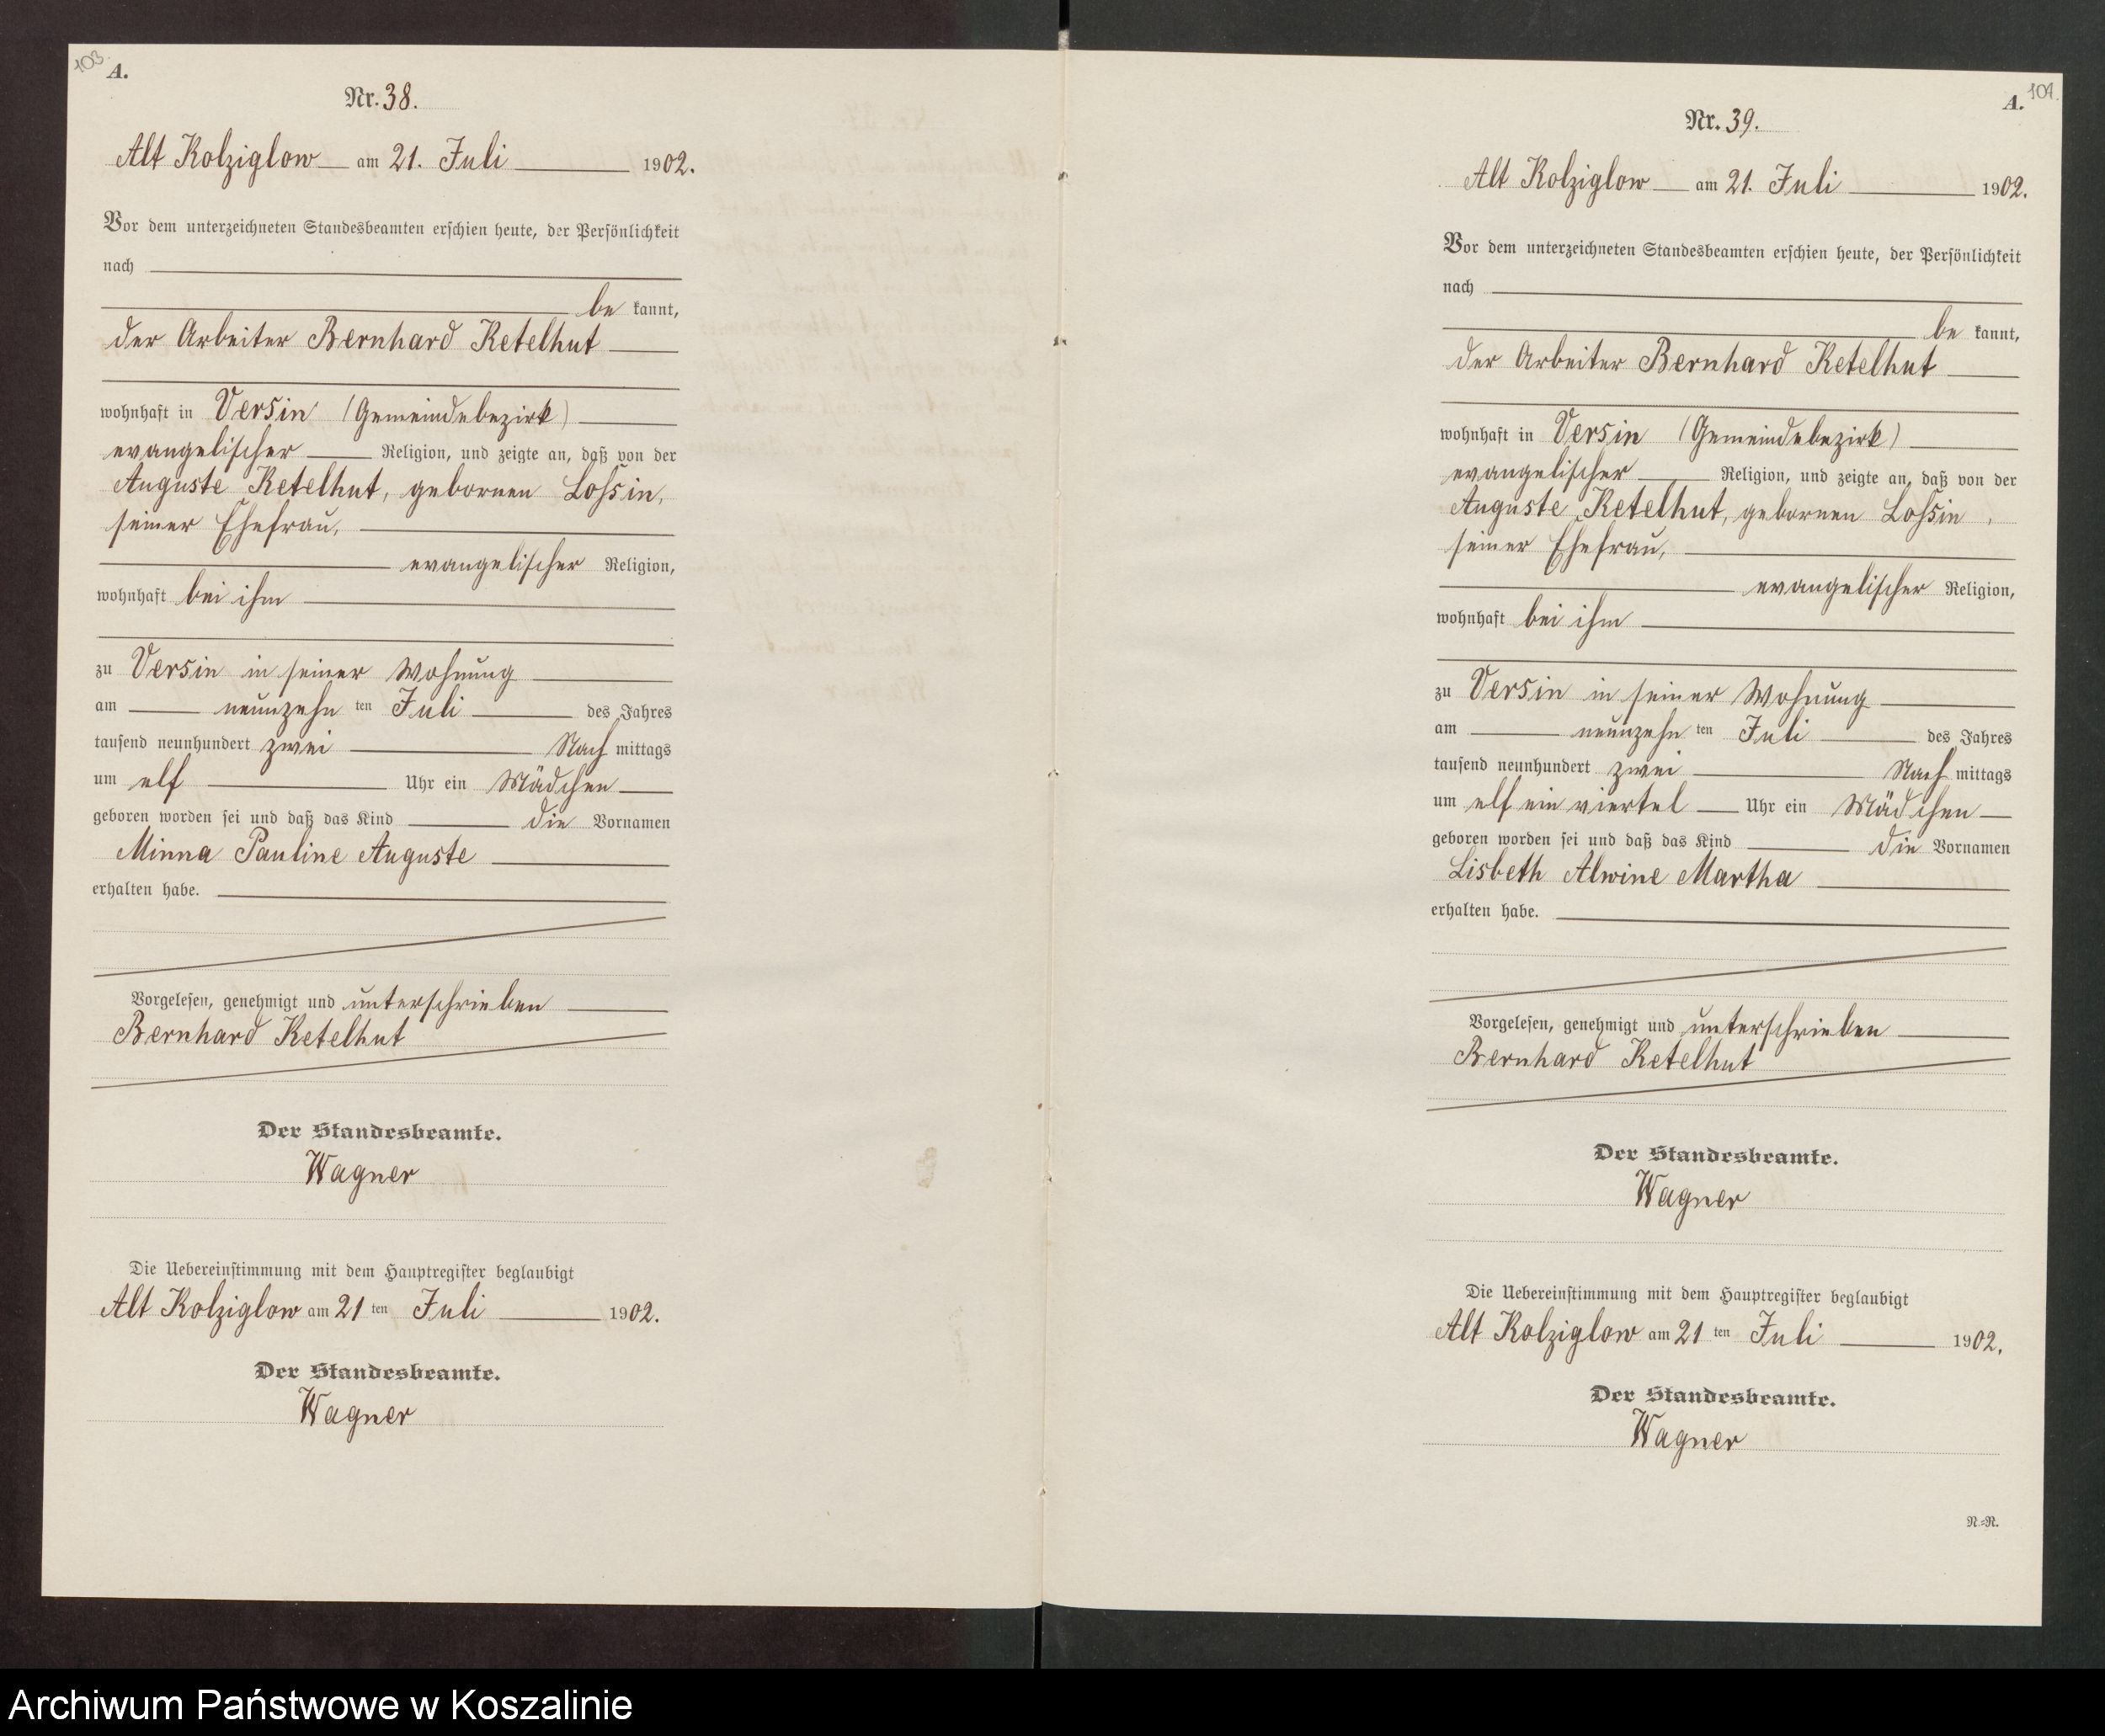 103.
A.
Nr. 38.
Alt Kolziglow am 21. Juli 1902.
Vor dem unterzeichneten Standesbeamten erschien heute, der Persönlichkeit
nach
be kannt,
der Arbeiter Bernhard Ketelhut
wohnhaft in Versin (Gemeindebezirk)
evangelischer Religion, und zeigte an, daß von der
Auguste Ketelhut, gebornen Lossin,
seiner Ehefrau,
evangelischer Religion,
wohnhaft bei ihm
zu Versin in seiner Wohnung
am neunzehn ten Juli des Jahres
tausend neunhundert zwei Nach mittags
um elf Uhr ein Mädchen
geboren worden sei und daß das Kind die Vornamen
Minna Pauline Auguste
erhalten habe.
Vorgelesen, genehmigt und unterschrieben
Bernhard Ketelhut
Der Standesbeamte.
Wagner
Die Uebereinstimmung mit dem Hauptregister beglaubigt
Alt Kolziglow am 21 ten Juli 1902.
Der Standesbeamte.
Wagner
A.
104.
Nr. 39.
Alt Kolziglow am 21. Juli 1902.
Vor dem unterzeichneten Standesbeamten erschien heute, der Persönlichkeit
nach
be kannt,
der Arbeiter Bernhard Ketelhut
wohnhaft in Versin (Gemeindebezirk)
evangelischer Religion, und zeigte an, daß von der
Auguste Ketelhut, gebornen Lossin,
seiner Ehefrau,
evangelischer Religion,
wohnhaft bei ihm
zu Versin in seiner Wohnung
am neunzehn ten Juli des Jahres
tausend neunhundert zwei Nach mittags
um elf ein viertel Uhr ein Mädchen
geboren worden sei und daß das Kind die Vornamen
Lisbeth Alwine Martha
erhalten habe.
Vorgelesen, genehmigt und unterschrieben
Bernhard Ketelhut
Der Standesbeamte.
Wagner
Die Uebereinstimmung mit dem Hauptregister beglaubigt
Alt Kolziglow am 21 ten Juli 1902.
Der Standesbeamte.
Wagner
N.-N.
Archiwum Państwowe w Koszalinie